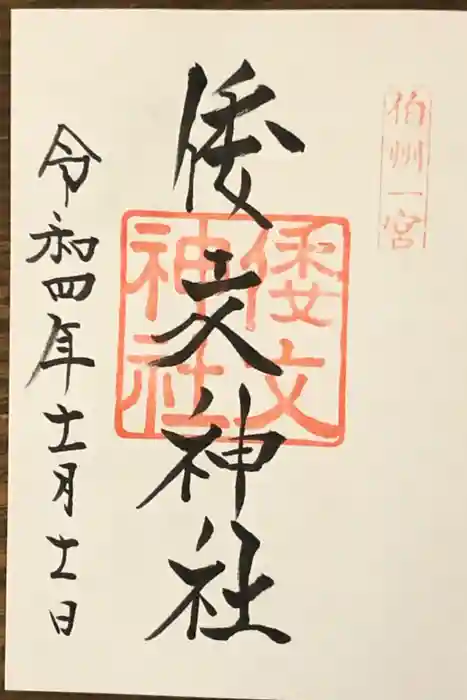 伯州一宮
倭文神社
倭文神社
令和四年十一月十一日